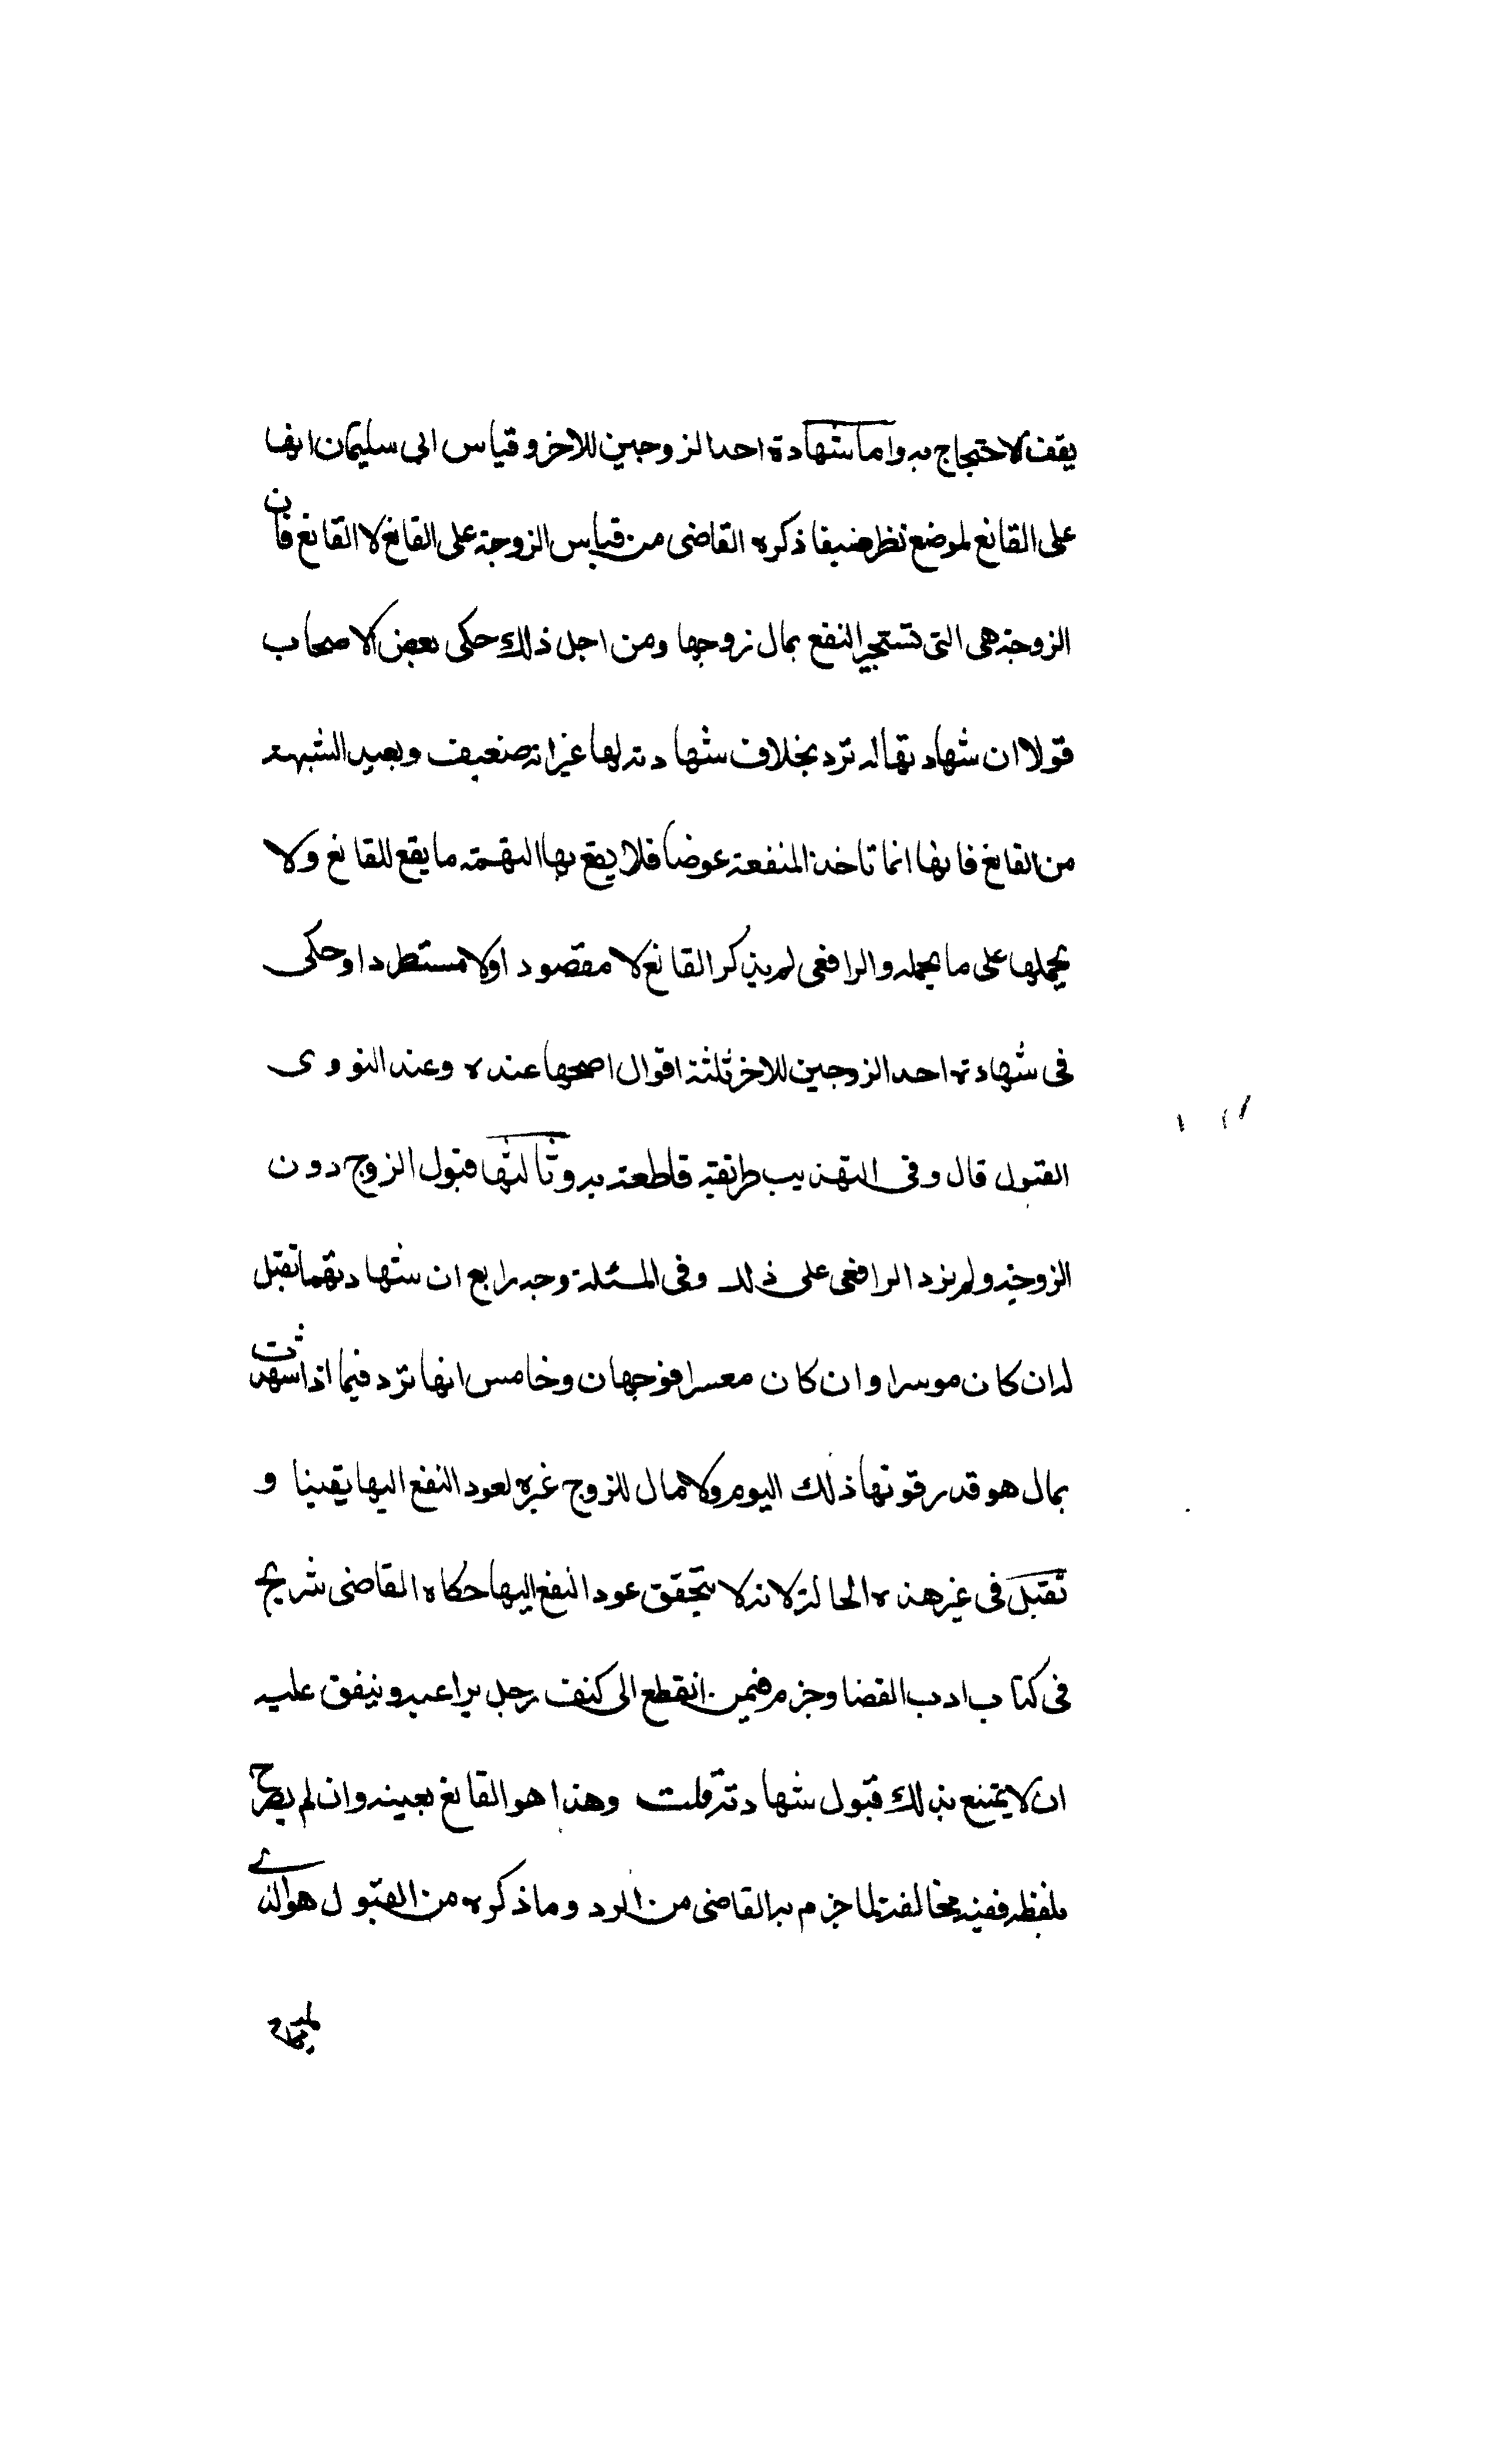 يقف الاحتجاج به واما شهادة احد الزوجين للاخر وقياس ابى سليمان انها
على القانع لموضع نظر ضيفا ذكره القاضى من قياس الزوجة على القانع لا القانع فان
الزوجة هى التى تستجر النفع بمال زوجها ومن اجل ذلك حكى بعض الاصحاب
قولا ان شهادتها له ترد بخلاف شهادته لها غير انه ضعيف وبعيد الشبهة
من القانع فانها انما تاخذ المنفعة عوضا فلا يقع بها التهمة ما يقع للقانع ولا
يحملها على ما يحمله والرافعى لم يذكر القانع لا مقصودا ولا مستطردا وحكى
فى شهادة احد الزوجين للاخر ثلثة اقوال اصحها عنده وعند النووى
القبول قال وفى التهذيب طريقة قاطعة به وثالثها قبول الزوج دون
الزوجة ولم يزد الرافعى على ذلك وفى المسئلة وجه رابع ان شهادتهما تقبل
له ان كان موسرا وان كان معسرا فوجهان وخامس انها ترد فيما اذا شهدت
بمال هو قدر قوتها ذلك اليوم ولا مال للزوج غيره لعود النفع اليها يقينا و
تقبل فى غير هذه الحالة لانه لا يتحقق عود النفع اليها حكاه القاضى شريح
فى كتاب ادب القضا وجزم فيمن انقطع الى كنف رجل يراعيه وينفق عليه
ان لا يمتنع بذلك قبول شهادته قلت وهذا هو القانع بعينه وان لم يصرح
بلفظه ففيه مخالفة لما جزم به القاضى من الرد وما ذكره من القبول هو الذے